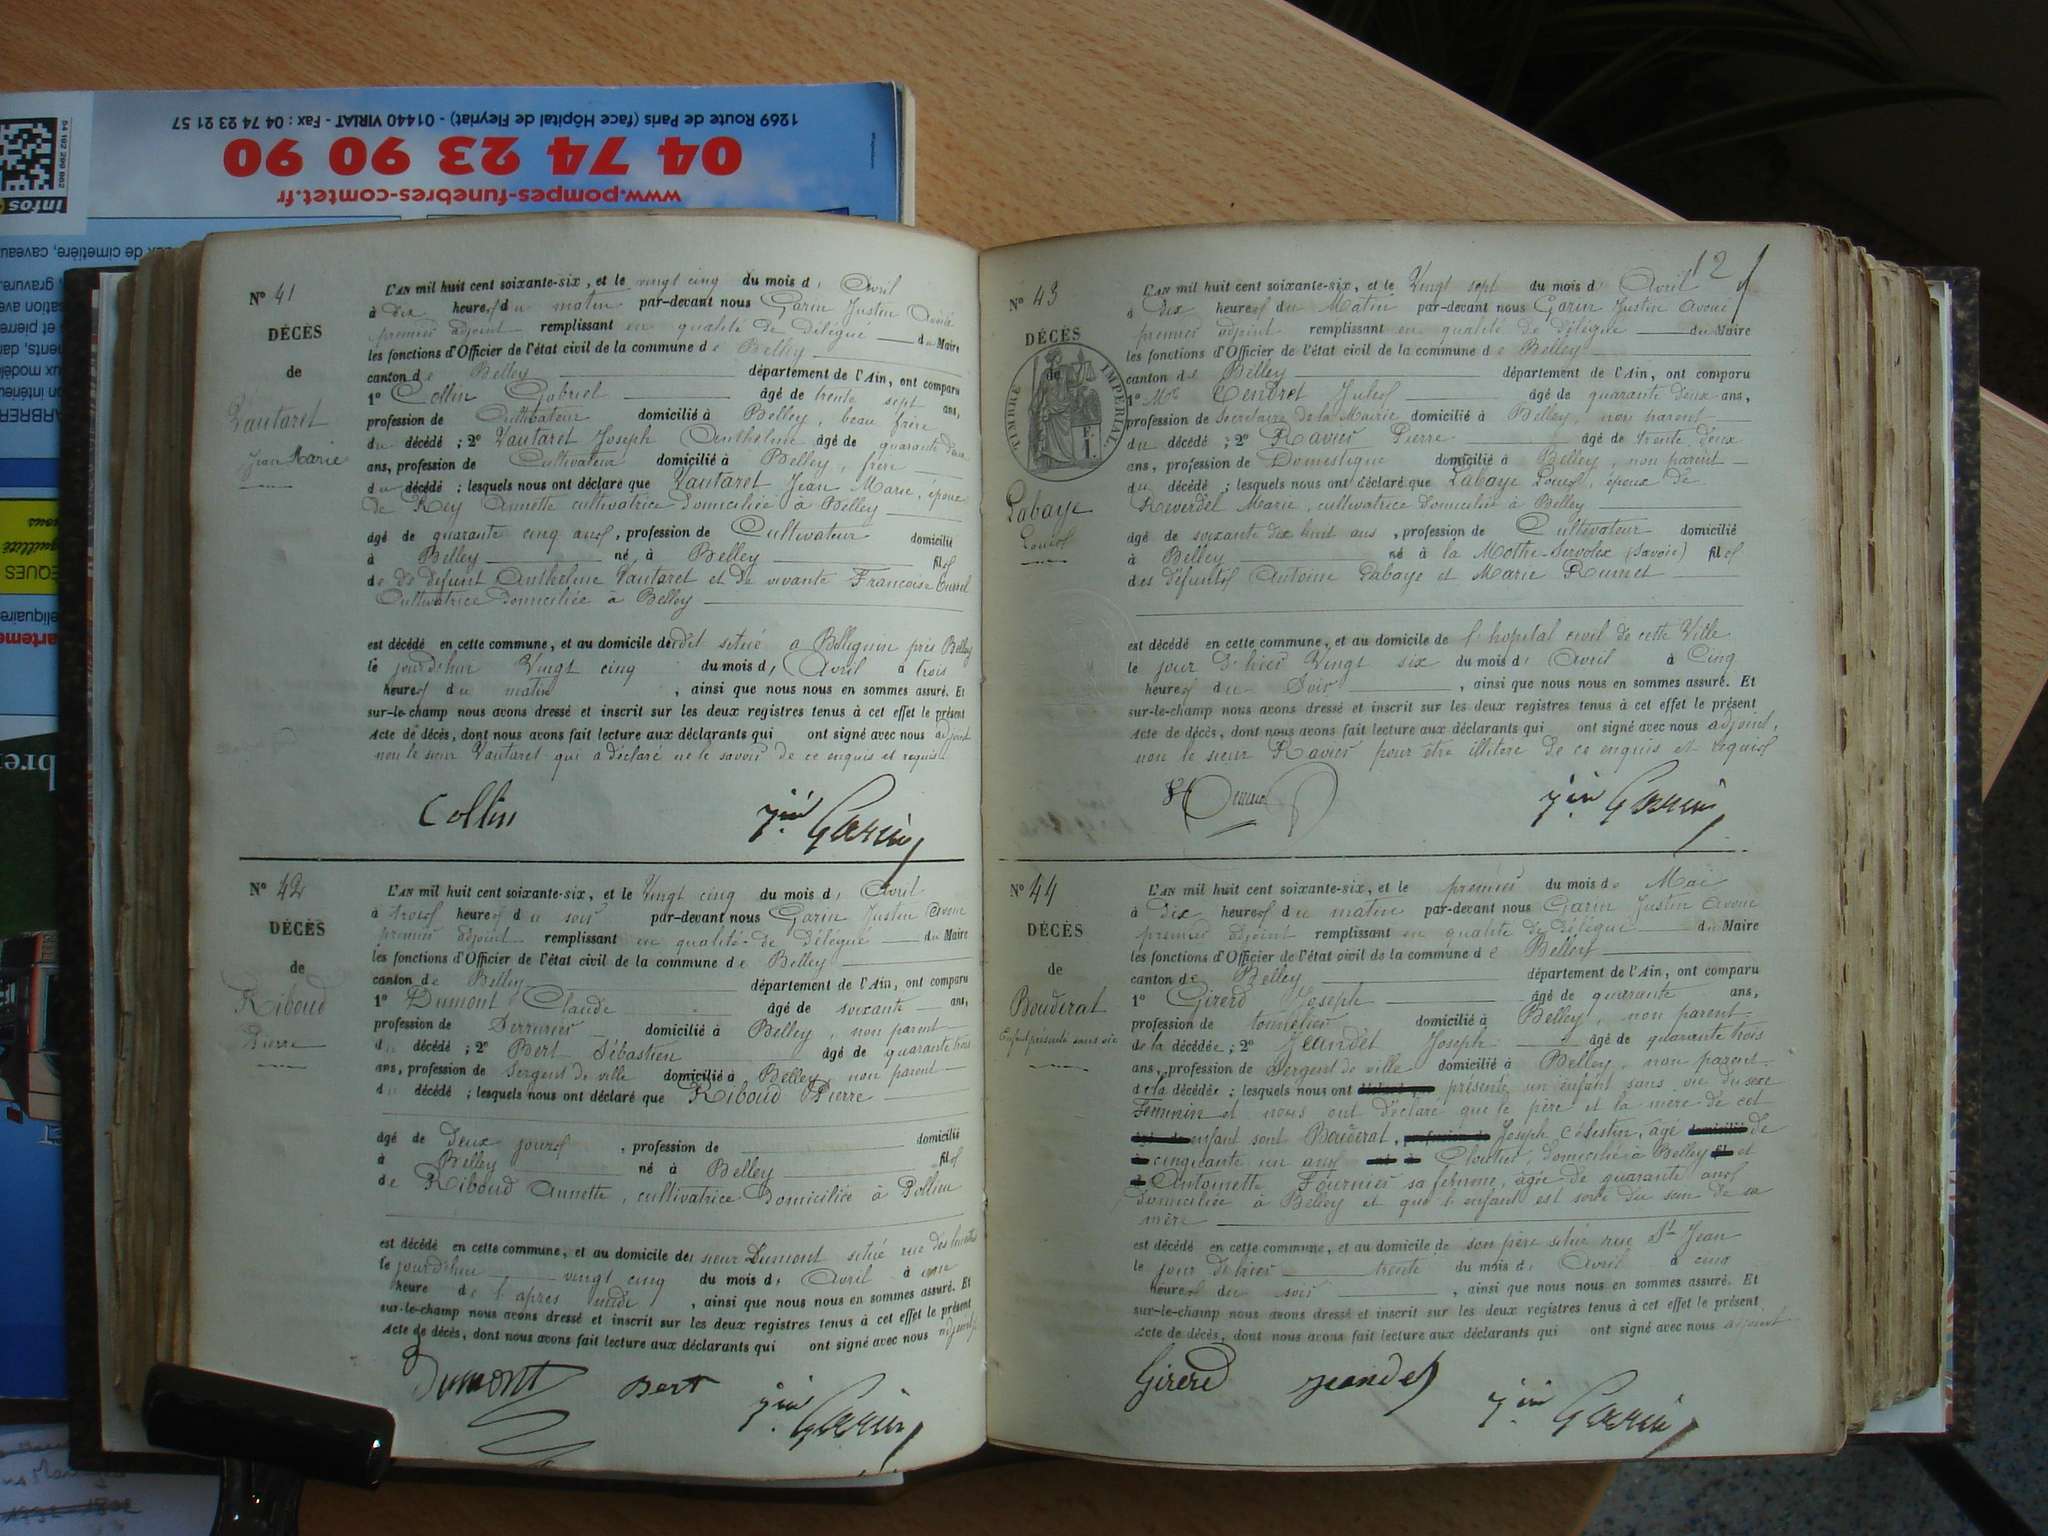 1269 Route de Paris (face Hôpital de Fleyriat) - 01440 VIRIAT - Fax : 04 74 23 21 57
04 74 23 90 90
www.pompes-funebres-comtet.fr
infos
54 102 299 862
N° 41
DÉCÈS
de
Vautaret
Jean Marie
L'AN mil huit cent soixante-six, et le vingt cinq du mois d' Avril
à dix heures du matin par-devant nous Garin Justin
premier adjoint remplissant en qualité de Délégué du Maire
les fonctions d'Officier de l'état civil de la commune de Belley
canton de Belley département de l'Ain, ont comparu
1° Collin Gabriel âgé de trente sept ans,
profession de Cultivateur domicilié à Belley, beau frère
du décédé ; 2° Vautaret Joseph Anthelme âgé de quarante deux
ans, profession de Cultivateur domicilié à Belley, frère
du décédé ; lesquels nous ont déclaré que Vautaret Jean Marie, époux
de Rey Annette cultivatrice domiciliée à Belley
âgé de quarante cinq ans, profession de Cultivateur domicilié
à Belley né à Belley fils
de défunt Anthelme Vautaret et de vivante Francoise
Cultivatrice domiciliée à Belley
est décédé en cette commune, et au domicile de situé a près Belley
le jourd'hui Vingt cinq du mois d' Avril à trois
heures du matin, ainsi que nous nous en sommes assuré. Et
sur-le-champ nous avons dressé et inscrit sur les deux registres tenus à cet effet le présent
Acte de décès, dont nous avons fait lecture aux déclarants qui ont signé avec nous adjoint
non le sieur Vautaret qui a déclaré ne le savoir de ce enquis et requis
Collin Jin Garin
N° 42
DÉCÈS
de
Riboud
Pierre
L'AN mil huit cent soixante-six, et le Vingt cinq du mois d' Avril
à trois heures du soir par-devant nous Garin Justin Avoué
premier adjoint remplissant en qualité de Délégué du Maire
les fonctions d'Officier de l'état civil de la commune de Belley
canton de Belley département de l'Ain, ont comparu
1° Dumont Claude âgé de soixante ans,
profession de Serrurier domicilié à Belley, non parent
du décédé ; 2° Bert Sébastien âgé de quarante trois
ans, profession de Sergent de ville domicilié à Belley, non parent
du décédé ; lesquels nous ont déclaré que Riboud Pierre
âgé de Deux jours, profession de domicilié
à Belley né à Belley fils
de Riboud Annette, cultivatrice domiciliée à Pollieu
est décédé en cette commune, et au domicile de sieur Dumont situé rue des
le jourd'hui vingt cinq du mois d' Avril à une
heure de l'après midi, ainsi que nous nous en sommes assuré. Et
sur-le-champ nous avons dressé et inscrit sur les deux registres tenus à cet effet le présent
Acte de décès, dont nous avons fait lecture aux déclarants qui ont signé avec nous adjoint
Dumont Bert Jin Garin
12
N° 43
DÉCÈS
de
TIMBRE IMPÉRIAL
Labaye
Louis
L'AN mil huit cent soixante-six, et le Vingt sept du mois d' Avril
à Dix heures du Matin par-devant nous Garin Justin Avoué
premier adjoint remplissant en qualité de délégué du Maire
les fonctions d'Officier de l'état civil de la commune de Belley
canton de Belley département de l'Ain, ont comparu
1° Jules âgé de quarante deux ans,
profession de Secrétaire de la Mairie domicilié à Belley, non parent
du décédé ; 2° Ravier Pierre âgé de trente deux
ans, profession de Domestique domicilié à Belley, non parent
du décédé ; lesquels nous ont déclaré que Labaye Louis, époux de
Reverdet Marie, cultivatrice domiciliée à Belley
âgé de soixante dix huit ans, profession de Cultivateur domicilié
à Belley né à la Mothe-Servolex (Savoie) fils
des défunts Antoine Labaye et Marie
est décédé en cette commune, et au domicile de l'hopital civil de cette Ville
le jour d'hier Vingt six du mois d' Avril à Cinq
heures du Soir, ainsi que nous nous en sommes assuré. Et
sur-le-champ nous avons dressé et inscrit sur les deux registres tenus à cet effet le présent
Acte de décès, dont nous avons fait lecture aux déclarants qui ont signé avec nous adjoint,
non le sieur Ravier pour être illitéré de ce enquis et requis
Jin Garin
N° 44
DÉCÈS
de
Bouderat
Enfant présenté sans vie
L'AN mil huit cent soixante-six, et le premier du mois de Mai
à Dix heures du matin par-devant nous Garin Justin Avoué
premier adjoint remplissant en qualité de Délégué du Maire
les fonctions d'Officier de l'état civil de la commune de Belley
canton de Belley département de l'Ain, ont comparu
1° Girerd Joseph âgé de quarante ans,
profession de tonnelier domicilié à Belley, non parent
de la décédée ; 2° Jeandet Joseph âgé de quarante trois
ans, profession de Sergent de ville domicilié à Belley, non parent
de la décédée ; lesquels nous ont présenté un enfant sans vie du sexe
Feminin et nous ont déclaré que le père et la mère de cet
enfant sont Bouderat, Joseph Célestin, âgé de
cinquante un ans Cloutier, domicilié à Belley et
Antoinette Fournier sa femme, âgée de quarante ans
domiciliée à Belley et que l'enfant est sorti du sein de sa
mère
est décédé en cette commune, et au domicile de son père situé rue St Jean
le jour d'hier trente du mois d' Avril à cinq
heures du soir, ainsi que nous nous en sommes assuré. Et
sur-le-champ nous avons dressé et inscrit sur les deux registres tenus à cet effet le présent
Acte de décès, dont nous avons fait lecture aux déclarants qui ont signé avec nous adjoint
Girerd Jeandet Jin Garin